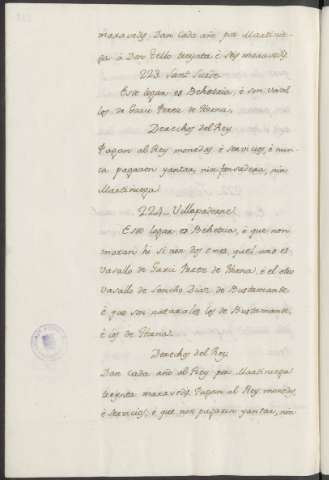 maravedis. Dan cada año por Martinie-
ga à Don Tello treynta è seys maravedis.
223. Sant Surde
Este logar es Behetria, è son vasal
los de Garci Perez de
Derechos del Rey.
Pagan al Rey monedas è servicios, è nun-
ca pagaron yantar, nin fonsadera, nin
Martiniega.
224. Villapaderne.
Este logar es Behetria, è que non
moran hi si non dos omes, quel uno es
Vasallo de Garci Perez de è el otro
Vasallo de Sancho Diaz de Bustamante,
è que son naturales los de Bustamante,
è los de
Derechos del Rey.
Dan cada año al Rey por Martiniega
treynta maravedis. Pagan al Rey monedas,
è servicios; è que non pagaron yantar, nin